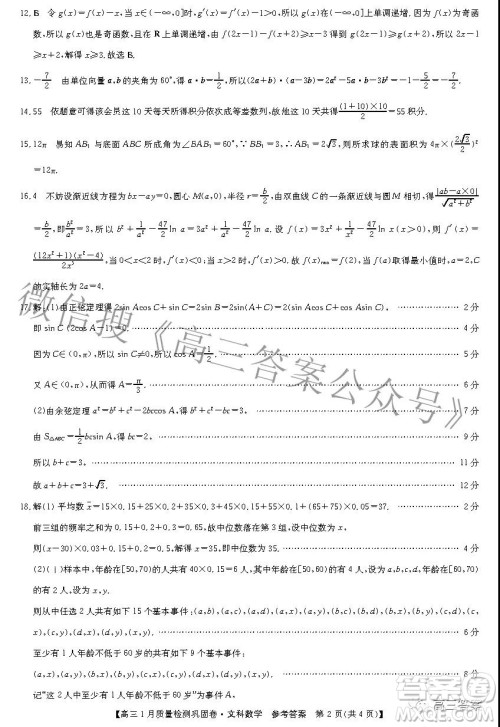 12. B 令 g(x)=f(x)-x, 当 x∈(-∞,0] 时, g′(x)=f′(x)-1>0, 所以 g(x) 在 (-∞,0] 上单调递增. 因为 f(x) 为奇函
数, 所以 g(x) 也是奇函数, 且在 R 上单调递增. 由 f(2x-1)-f(x+2)≥x-3 得到 g(2x-1)≥g(x+2), 所以 2x-1
≥x+2, 解得 x≥3. 故选 B.
13. -7/2 由单位向量 a,b 的夹角为 60°, 得 a·b=1/2, 所以(2a+b)·(a-3b)=2a²-5a·b-3b²=-1-5/2=-7/2.
14. 55 依题意可得该会员这 10 天每天所得积分依次成等差数列, 故他这 10 天共得 (1+10)×10/2=55 积分.
15. 12π 易知 AB₁ 与底面 ABC 所成角为∠BAB₁=60°, ∵BB₁=3, ∴AB₁=2√3, 则所求球的表面积为 4π×(2√3/2)²
=12π.
16. 4 不妨设渐近线方程为 bx-ay=0, 圆心 M(a,0), 半径 r=b/2, 由双曲线 C 的一条渐近线与圆 M 相切, 得 |ab-a×0|/√(a²+b²)
=b/2, 即 b²/a²=3, 所以 b²+1/a²-47/2 ln a=3a²+1/a²-47/2 ln a. 设 f(x)=3x²+1/x²-47/2 ln x(x>0), 则 f′(x)=
(12x²+1)(x²-4)/2x³, 当 0<x<2 时, f′(x)<0, 当 x>2 时, f′(x)>0, 故 f(x)min=f(2), 当 f(a)取得最小值时, a=2, C
的实轴长为 2a=4.
17. 解:(1)由正弦定理得2sin AcosC+sin C=2sin B=2sin(A+C)=2(sin AcosC+cos Asin C), 2分
即 sin C(2cos A-1)=0. 4分
因为 C∈(0,π), 所以 sin C≠0, 所以 cos A=1/2. 5分
又 A∈(0,π), 从而得 A=π/3. 6分
(2)由余弦定理 a²=b²+c²-2bccos A, 得 b²+c²-bc=3. 7分
由 S△ABC=1/2 bcsin A, 得 9分
所以 b+c=3, 11分
故 a+b+c=3. 12分
18. 解(1)平均数 x̄=15×0.15+25×0.2+35×0.3+45×0.15+(55+65)×0.05=37. 2分
前三组的频率之和为 0.15+0.2+0.3=0.65, 故中位数落在第 3 组, 设中位数为 x,
则(x-30)×0.03+0.15+0.2=0.5, 解得 x=35, 即中位数为 35. 4分
(2)(ⅰ)样本中, 年龄在[50,70)的人共有 40×0.15=6 人, 其中年龄在[50,60)的有 4 人, 设为 a,b,c,d, 年龄在[60,70)
的有 2 人, 设为 x.
则从中任选 2 人共有如下 15 个基本事件: (a,b), (a,c), (a,d), (a,x), (b,c), (b,d), (b,x),
6分
至少有 1 人年龄不低于 60 岁的共有如下 9 个基本事件:
(a,x), (b,x), (c,x), (d,x)
8分
记“这 2 人中至少有 1 人年龄不低于 60 岁”为事件 A,
【高三 1 月质量检测巩固卷·文科数学 参考答案 第 2 页(共 4 页)】
微信搜《高三答案公众号》